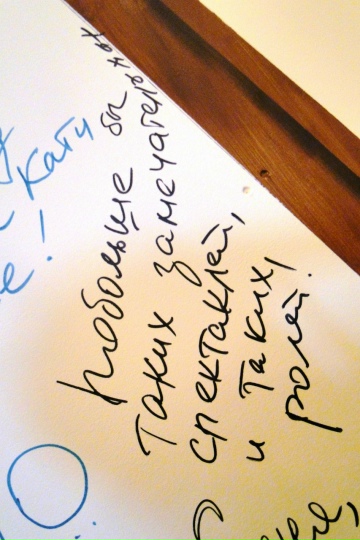 Кати
е!
Побольше бы
таких замечательных
спектаклей,
и таких
ролей!